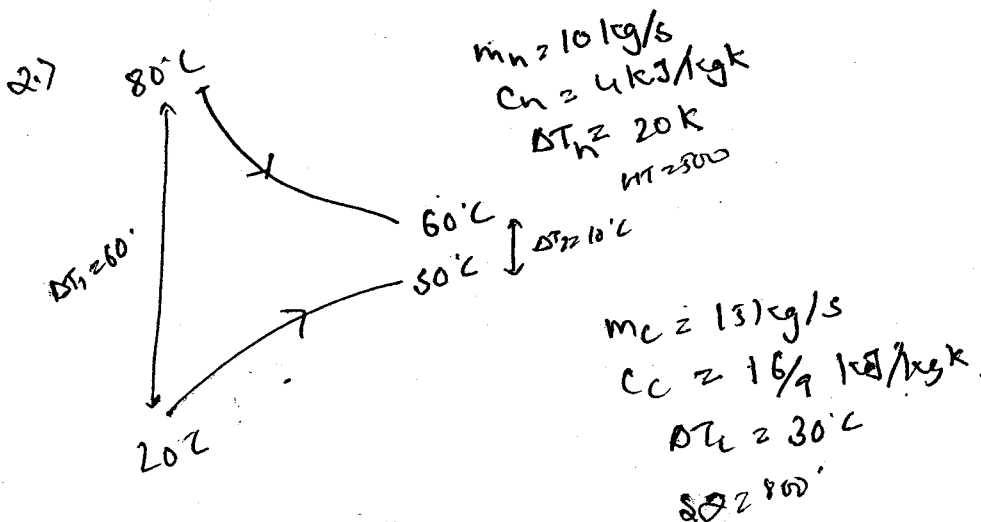 2.)
80°C
ṁh = 10 kg/s
Ch = 4 kJ/kgK
ΔTh = 20 K
ΔT1 = 60°
60°C
ΔT2 = 10°C
50°C
mc = 15 kg/s
Cc = 16/9 kJ/kgK
ΔTc = 30°C
20°C
= 800